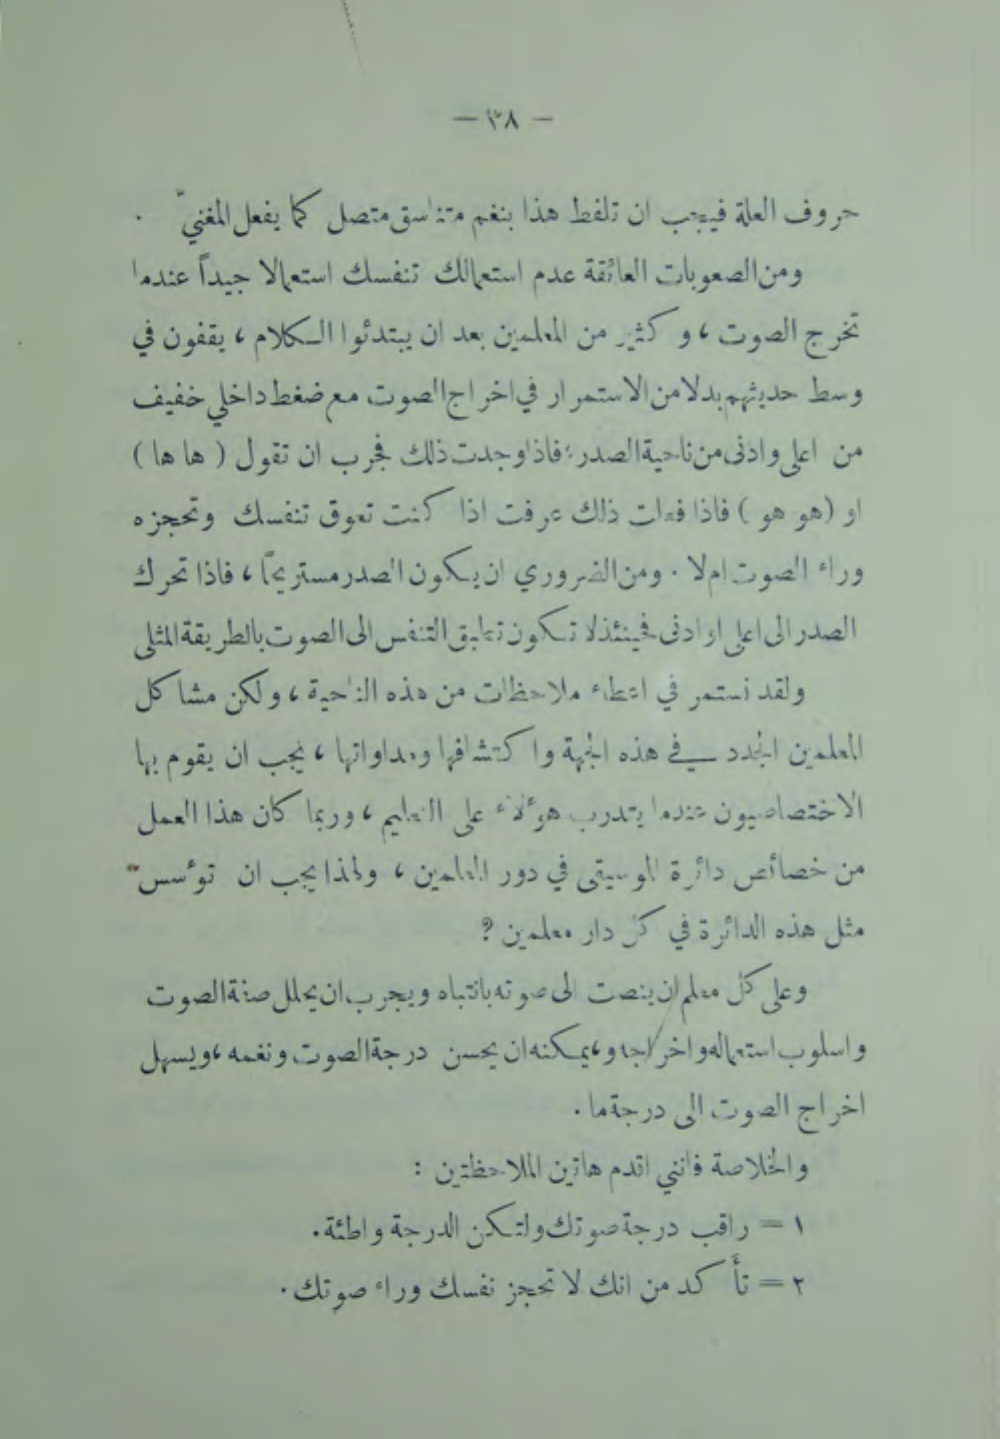 — ٣٨ —
حروف العلة فيجب ان تلفظ هذا بنغم متناسق متصل كما يفعل المغني .
ومن الصعوبات العائقة عدم استعمالك تنفسك استعمالا جيداً عندما
تخرج الصوت ، وكثير من المعلمين بعد ان يبتدئوا الكلام ، يقفون في
وسط حديثهم بدلا من الاستمرار في اخراج الصوت مع ضغط داخلي خفيف
من اعلى وادنى من ناحية الصدر ؛ فاذا وجدت ذلك فجرب ان تقول ( ها ها )
او ( هو هو ) فاذا فعلت ذلك عرفت اذا كنت تعوق تنفسك وتحجزه
وراء الصوت ام لا . ومن الضروري ان يكون الصدر مستريحاً ، فاذا تحرك
الصدر الى اعلى او ادنى فحينئذ لا تكون تطبق التنفس الى الصوت بالطريقة المثلى
ولقد نستمر في اعطاء ملاحظات من هذه الناحية ، ولكن مشاكل
المعلمين الجدد في هذه الجهة واكتشافها ومداواتها ، يجب ان يقوم بها
الاختصاصيون عندما يتدرب هؤلاء على التعليم ، وربما كان هذا العمل
من خصائص دائرة الموسيقى في دور المعلمين ، ولهذا يجب ان تؤسس
مثل هذه الدائرة في كل دار معلمين ؟
وعلى كل معلم ان ينصت الى صوته بانتباه ويجرب ان يحلل صفة الصوت
واسلوب استعماله واخراجه ، ويمكنه ان يحسن درجة الصوت ونغمه ، ويسهل
اخراج الصوت الى درجة ما .
والخلاصة فانني اقدم هاتين الملاحظتين :
١ = راقب درجة صوتك ولتكن الدرجة واطئة .
٢ = تأكد من انك لا تحجز نفسك وراء صوتك .